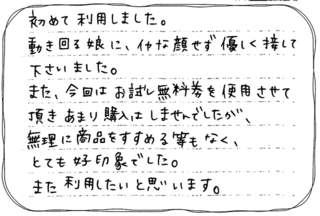 初めて利用しました。
動き回る娘に、イヤな顔せず優しく接して
下さいました。
また、今回はお試し無料券を使用させて
頂きあまり購入はしませんでしたが、
無理に商品をすすめる等もなく、
とても好印象でした。
また利用したいと思います。